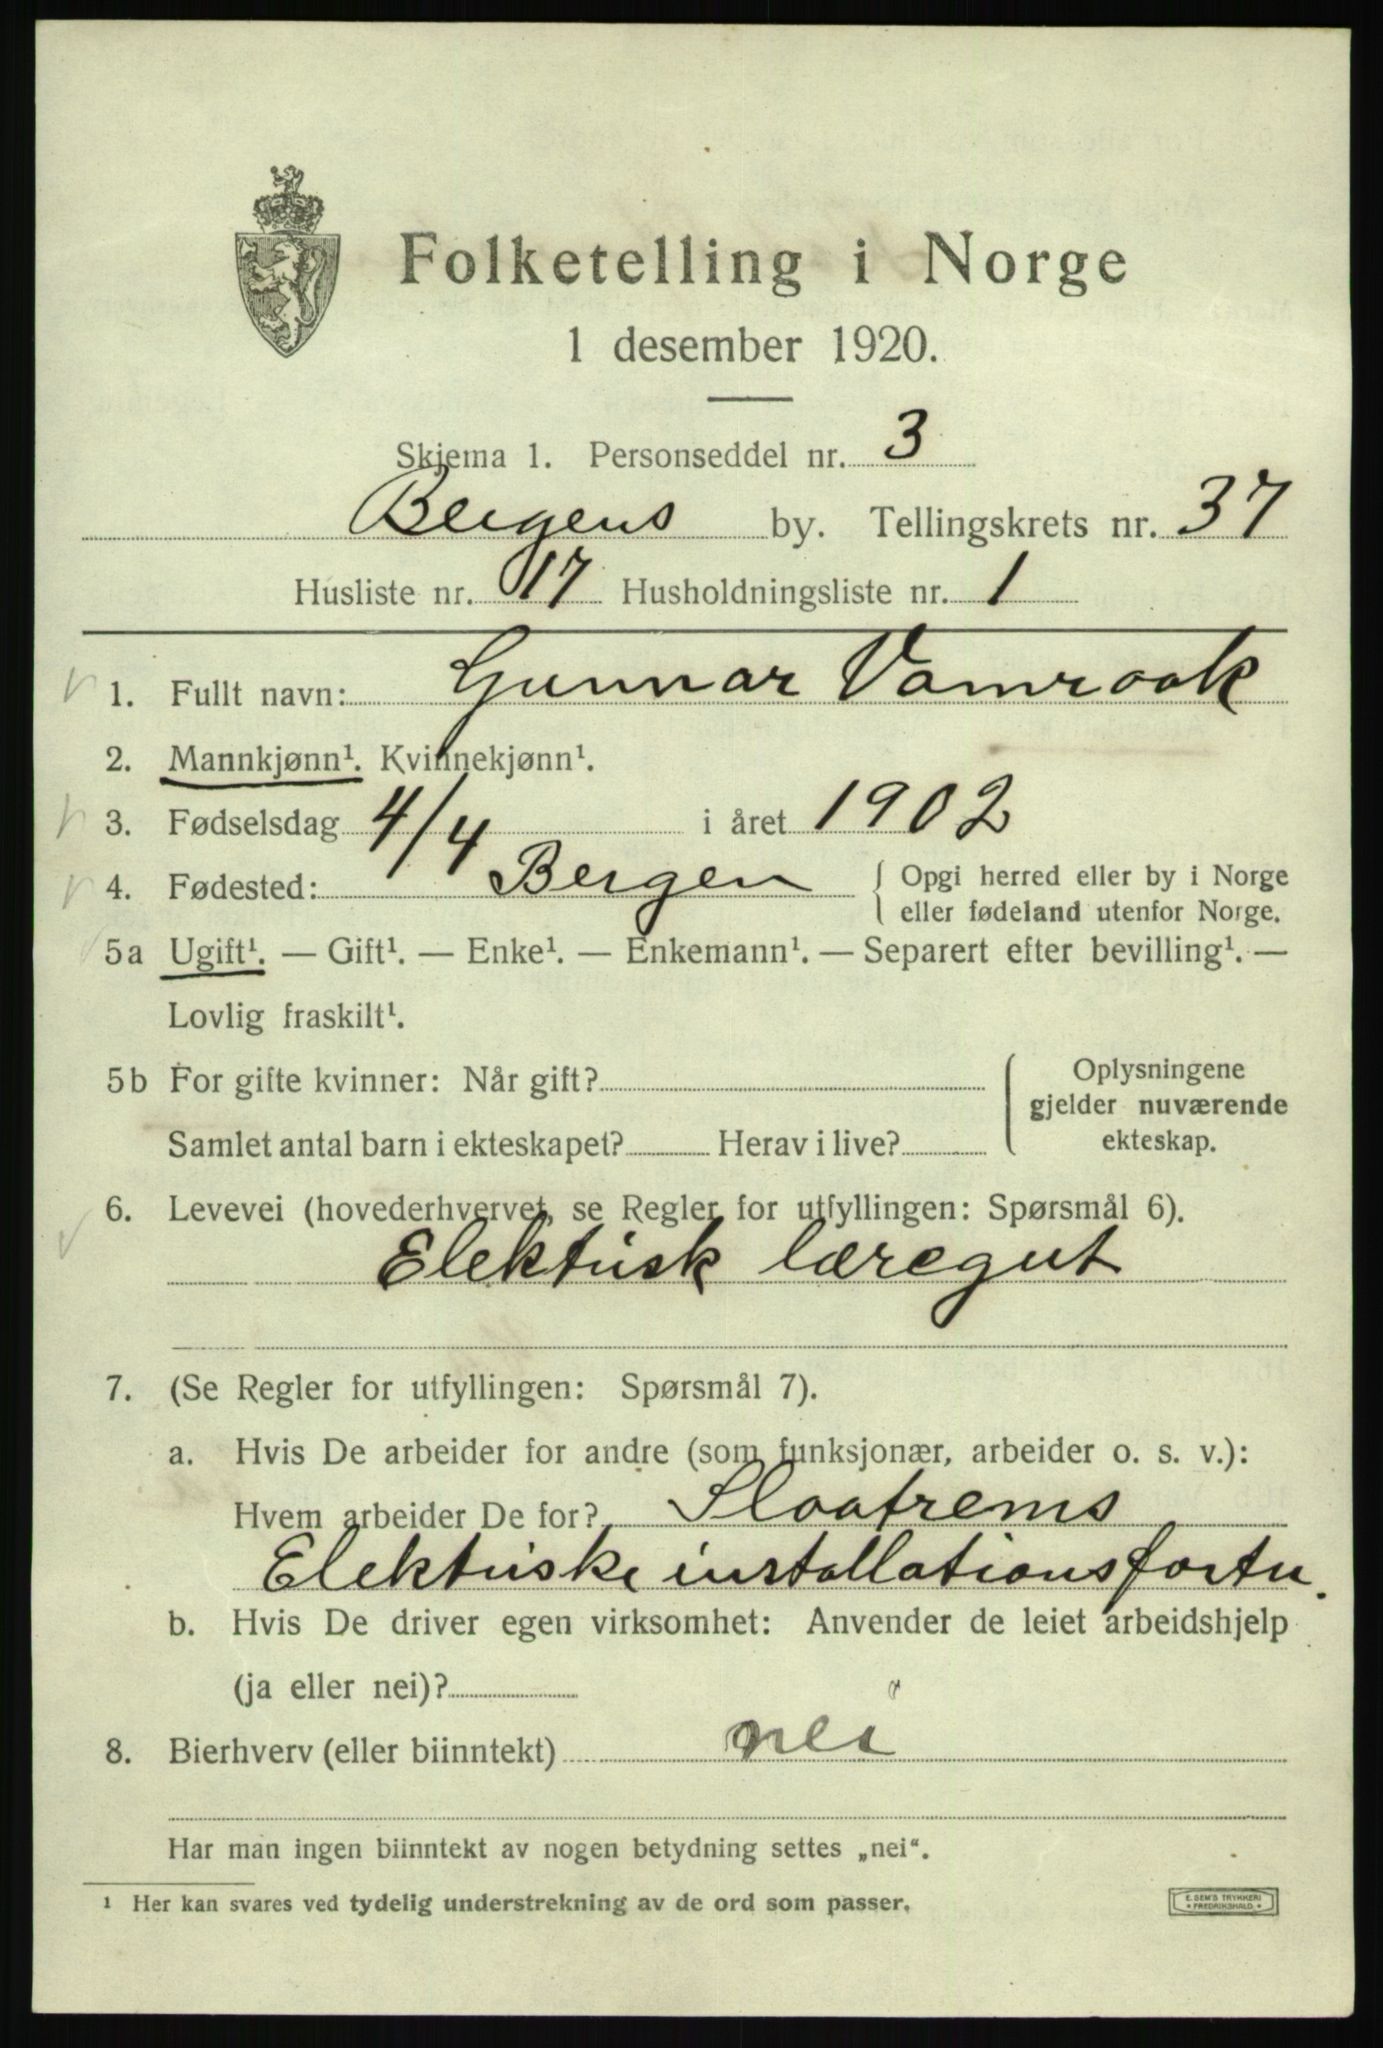 Folketelling i Norge
1 desember 1920.
Skjema 1. Personseddel nr. 3
Bergens by. Tellingskrets nr. 37
Husliste nr. 17 Husholdningsliste nr. 1
1. Fullt navn: Gunnar Vamraak
2. Mannkjønn¹. Kvinnekjønn¹.
3. Fødselsdag 4/4 i året 1902
4. Fødested: Bergen { Opgi herred eller by i Norge
eller fødeland utenfor Norge.
5a Ugift¹. — Gift¹. — Enke¹. — Enkemann¹. — Separert efter bevilling¹. —
Lovlig fraskilt¹.
5b For gifte kvinner: Når gift? Oplysningene
gjelder nuværende
Samlet antal barn i ekteskapet? Herav i live? ekteskap.
6. Levevei (hovederhvervet, se Regler for utfyllingen: Spørsmål 6).
Elektrisk læregut
7. (Se Regler for utfyllingen: Spørsmål 7).
a. Hvis De arbeider for andre (som funksjonær, arbeider o. s. v.):
Hvem arbeider De for? Slaatrems
Elektriske installationsfortn.
b. Hvis De driver egen virksomhet: Anvender de leiet arbeidshjelp
(ja eller nei)?
8. Bierhverv (eller biinntekt) nei
Har man ingen biinntekt av nogen betydning settes „nei“.
¹ Her kan svares ved tydelig understrekning av de ord som passer.
E. SEM'S TRYKKERI
* FREDRIKSHALD. *